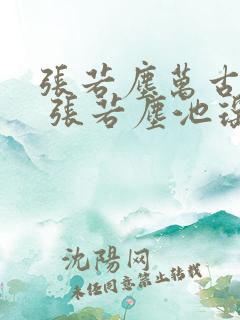 張若塵萬古
張若塵池
沈陽网
未经同意禁止转载